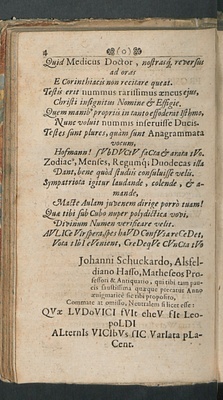 4 (o)
Quid Medicus Doctor, nostrasq́, reversus
ad oras
E Corinthiacis non recitare queat.
Testis erit nummus rarissimus æneus ejus,
Christi insignitus Nomine & Effigie,
Quem manib9 propriis in tanto effoderat Isthmo,
Nunc voluit nummis inseruisse Ducis.
Testes sunt plures, quàm sunt Anagrammata
vocum,
Hofmann! sVbDVCIV faCta & arata tVo.
Zodiac9, Menses, Regumq́; Duodecas illa
Dant, bene quòd studiis consuluisse velis.
Sympatriota igitur laudande, colende, & a-
mande,
Macte Aulam juvenem dirige porrò tuam!
Quæ tibi sub Cubo nuper polydictica vovi,
Divinum Numen verificare velit.
AVLICe Vir spera, spes haVD ConfVsa reCeDet,
Vota tIbI eVenient, CreDeqVe CVnCta tVo
Johanni Schuckardo, Alsfel-
diano Hasso, Matheseos Pro-
fessori & Antiquario, qui tibi tam pau-
cis faustissima quæque precatus Anno
ænigmaticè sic tibi proposito,
Commate at omisso, Neutralem si licet esse:
QVæ LVDoVICI fVIt eheV fIt Leo-
poLDI
ALternIs VICIbVs fIC Varlata pLa-
Cent.